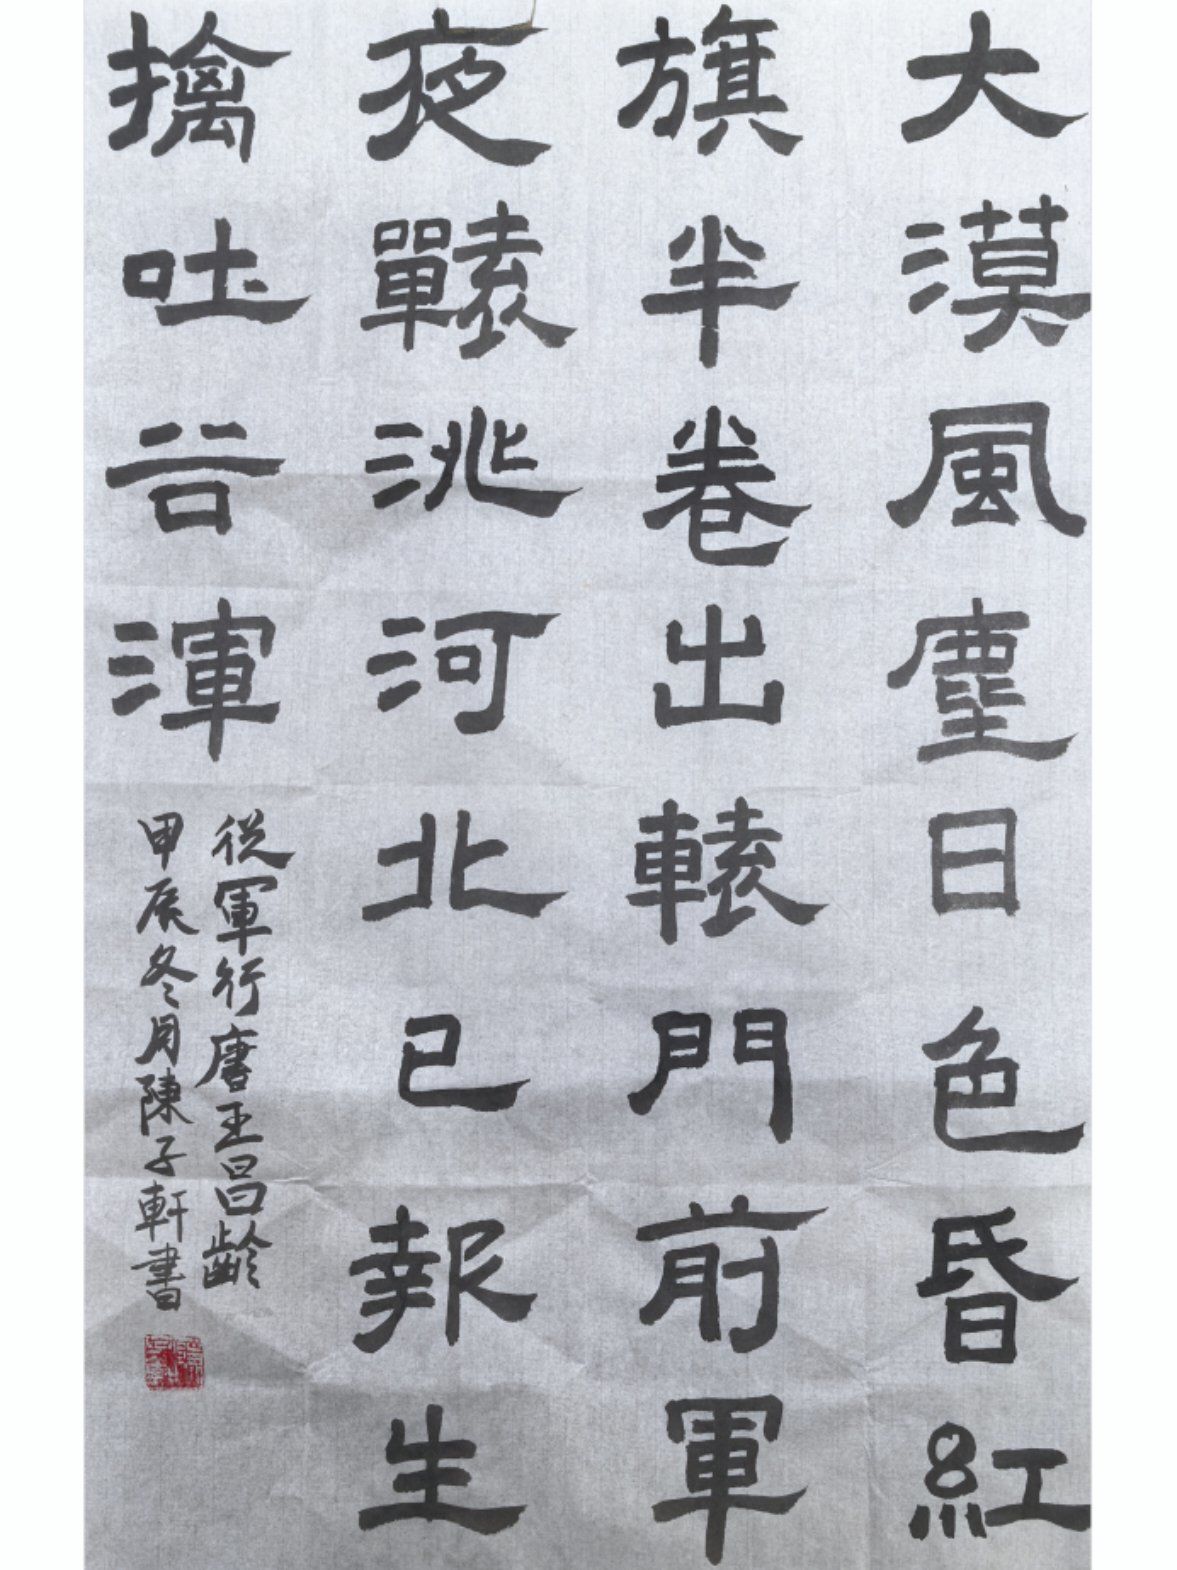 大漠風塵日色昏紅
旗半卷出轅門前軍
夜戰洮河北已報生
擒吐谷渾
從軍行唐王昌齡
甲辰冬月陳子軒書